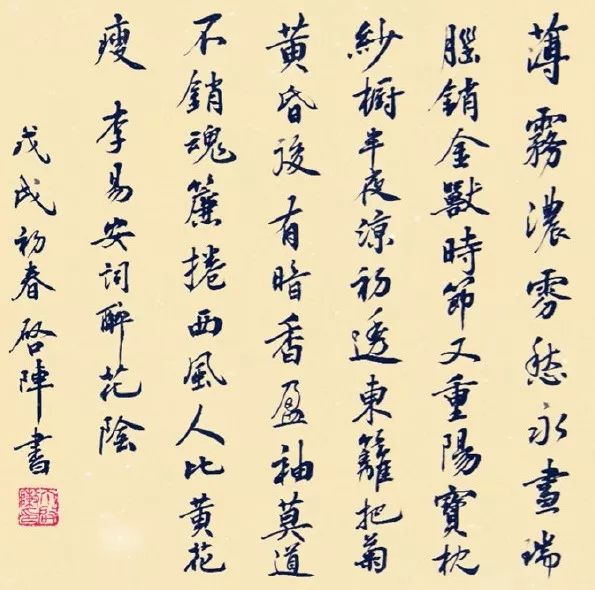 薄霧濃雰愁永晝瑞
腦銷金獸時節又重陽寶枕
紗橱半夜涼初透東籬把菊
黃昏後有暗香盈袖莫道
不銷魂簾捲西風人比黃花
瘦 李易安詞醉花陰
戊戌初春啓陣書